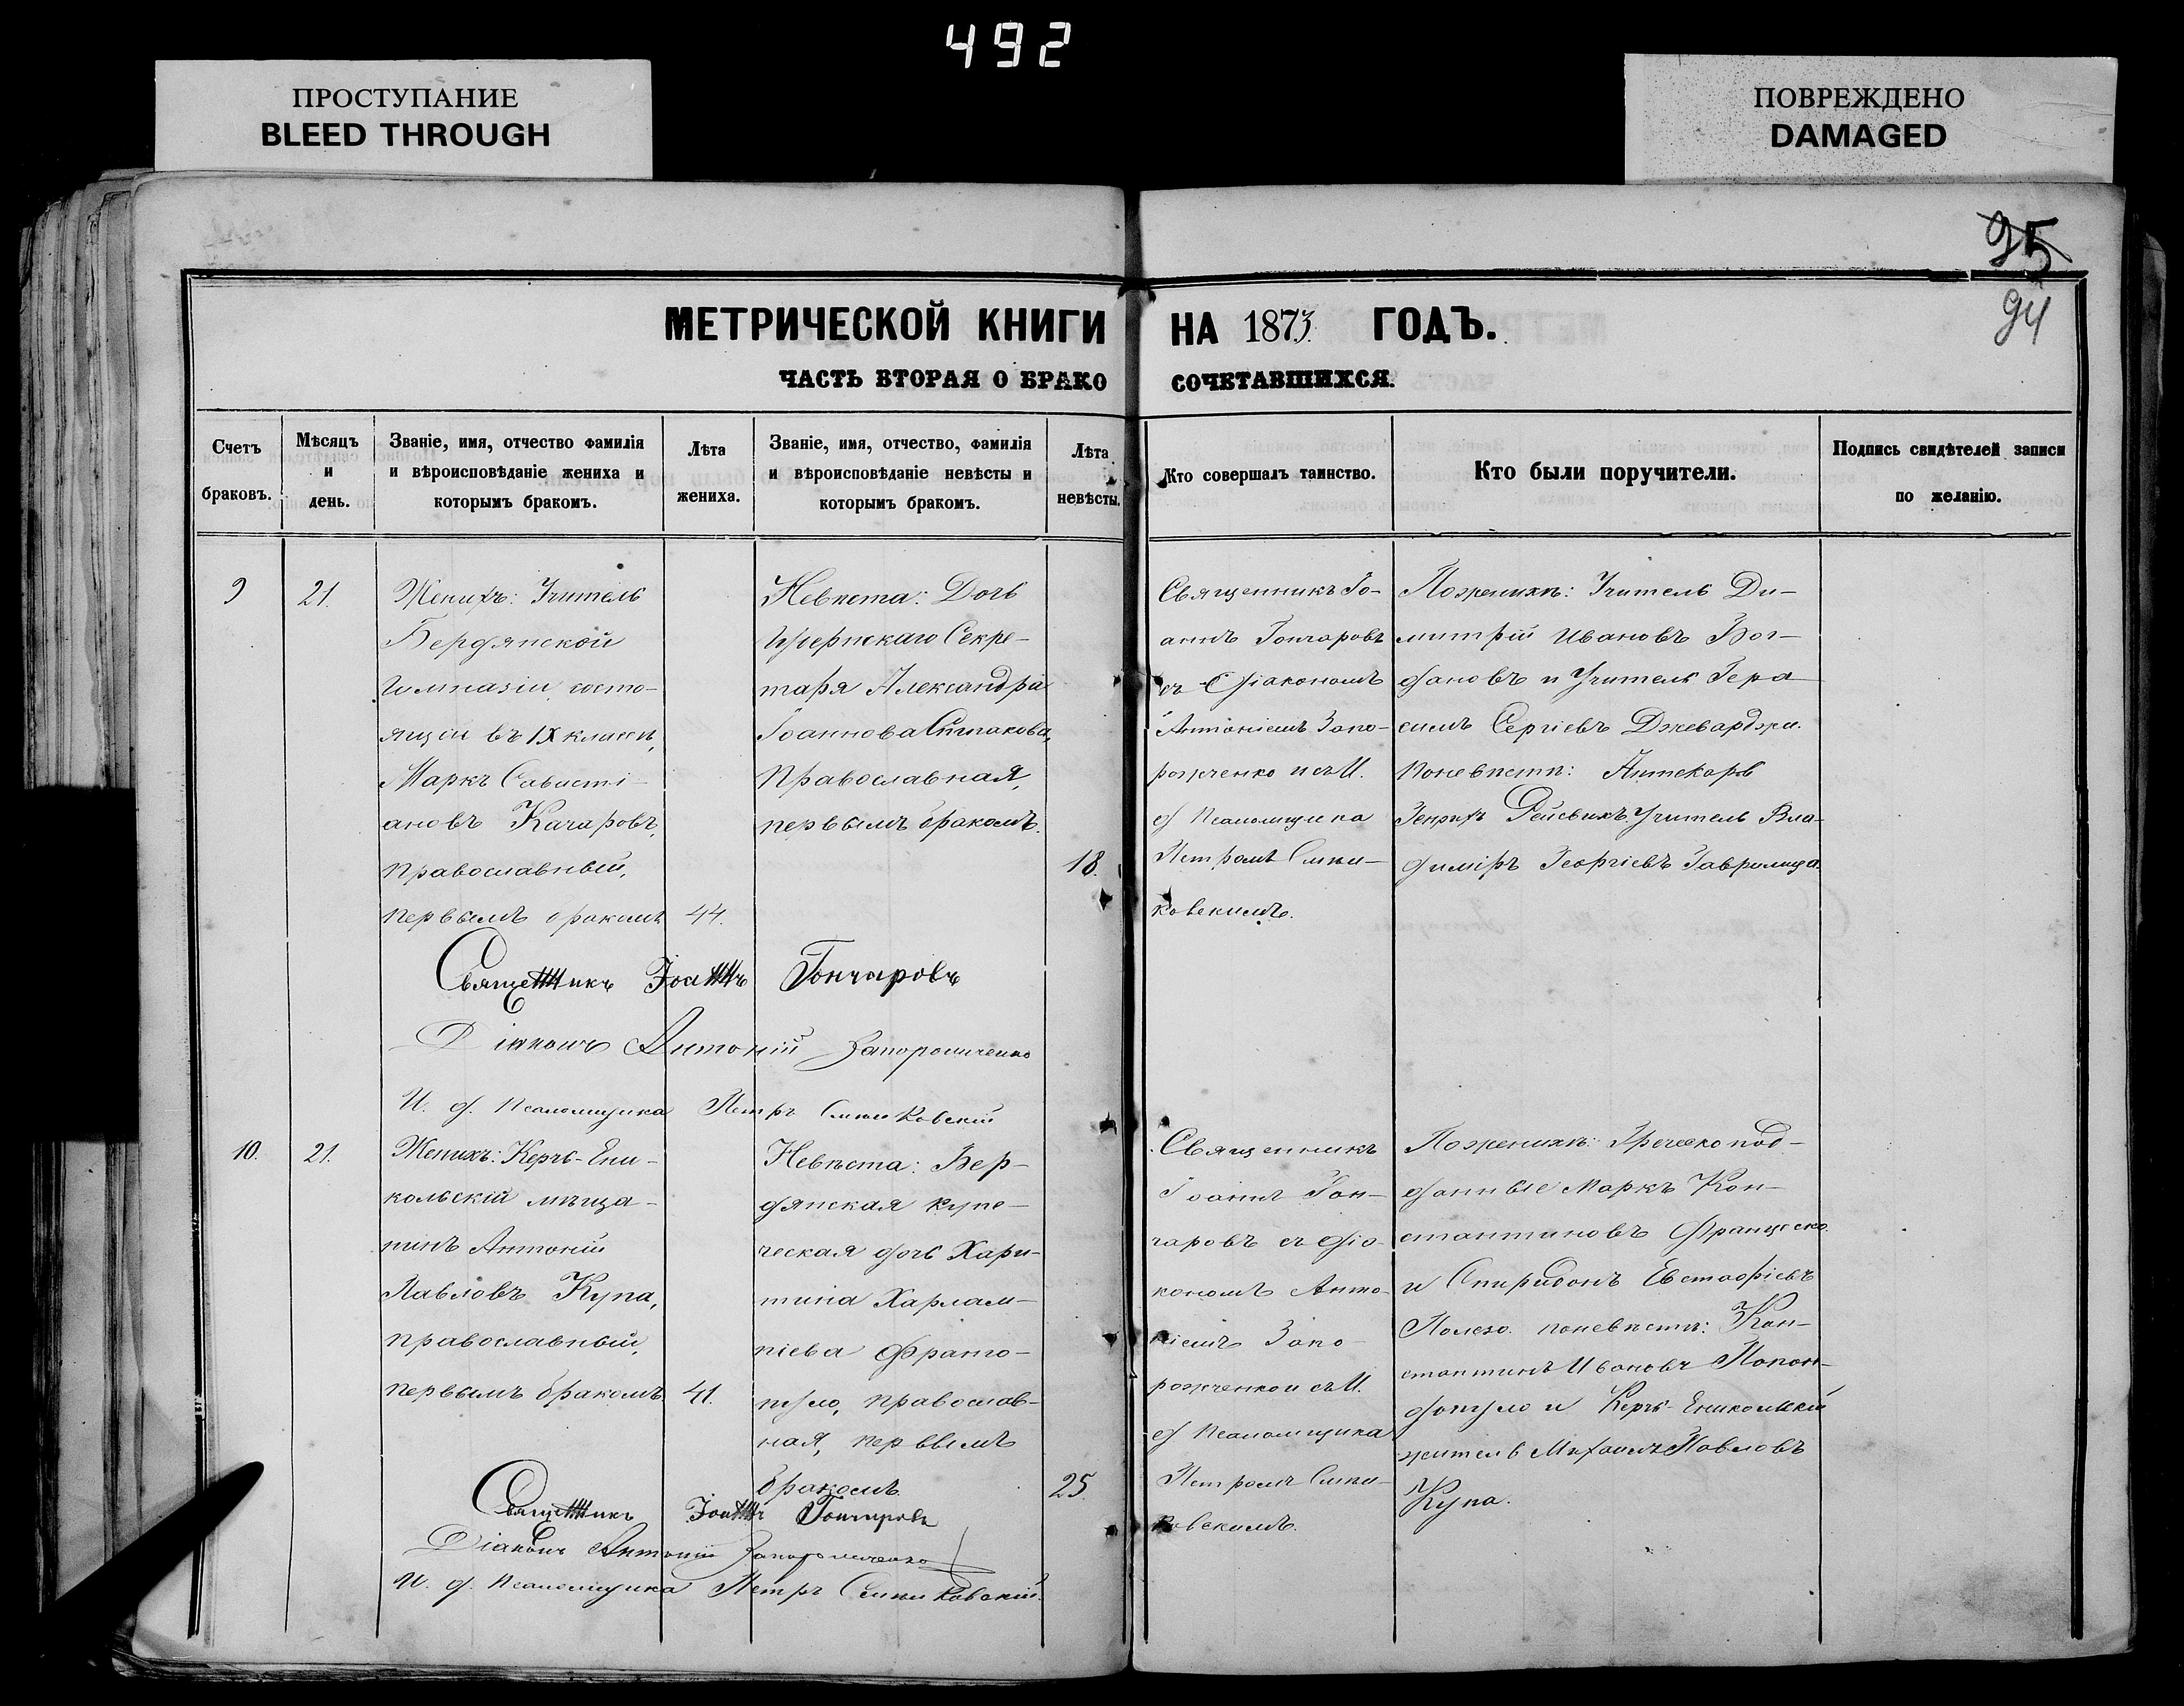 492
ПРОСТУПАНИЕ
BLEED THROUGH
ПОВРЕЖДЕНО
DAMAGED
95
94
МЕТРИЧЕСКОЙ КНИГИ НА 1873 ГОДЪ.
ЧАСТЬ ВТОРАЯ О БРАКОСОЧЕТАВШИХСЯ.
Счетъ
браковъ.
Мѣсяцъ
и
день.
Званіе, имя, отчество фамилія
и вѣроисповѣданіе жениха и
которымъ бракомъ.
Лѣта
жениха.
Званіе, имя, отчество, фамилія
и вѣроисповѣданіе невѣсты и
которымъ бракомъ.
Лѣта
невѣсты.
Кто совершалъ таинство.
Кто были поручители.
Подпись свидѣтелей записи
по желанію.
9
21.
Женихъ: Учитель
Бердянской
Гимназіи, состо-
ящій въ IX классѣ,
Маркъ Савасті-
ановъ Качаровъ,
православный,
первымъ бракомъ
44.
Невѣста: Дочь
Губернскаго Секре-
таря Александра
Іоаннова
Православная,
первымъ бракомъ.
18.
Священникъ Іо-
аннъ Гончаровъ
съ Діакономъ
Антоніемъ Запо-
рожченко и съ И.
д Псаломщика
Петромъ Сини-
ковскимъ.
По женихѣ: Учитель Ди-
митрій Ивановъ Бог-
дановъ и Учитель Гера
симъ Сергіевъ Джеварджи.
По невѣстѣ: Аптекарь
Генрихъ Учитель Вла-
диміръ Георгіевъ
Священникъ Іоаннъ Гончаровъ
Діаконъ Антоній Запорожченко
И. д. Псаломщика Петръ Синиковскій
10.
21.
Женихъ: Керчь-Ени-
кольскій мѣща-
нинъ Антоній
Павловъ Купа,
православный,
первымъ бракомъ.
41.
Невѣста: Бер-
дянская купе-
ческая дочь Хари-
тина Харлам-
піева Франго-
пуло, православ-
ная, первымъ
бракомъ.
25.
Священникъ
Іоаннъ Гон-
чаровъ съ Діа-
кономъ Анто-
ніемъ Запо
рожченко и съ И.
д Псаломщика
Петромъ Сини-
ковскимъ.
По женихѣ: Греческо под-
данные Маркъ Кон-
стантиновъ Франческо
и Спиридонъ Евстафіевъ
по невѣстѣ: Кон-
стантинъ Ивановъ Папан-
допуло и Керчь-Еникольскій
житель Михаилъ Павловъ
Купа.
Священникъ Іоаннъ Гончаровъ
Діаконъ Антоній Запорожченко
И. д. Псаломщика Петръ Синиковскій.